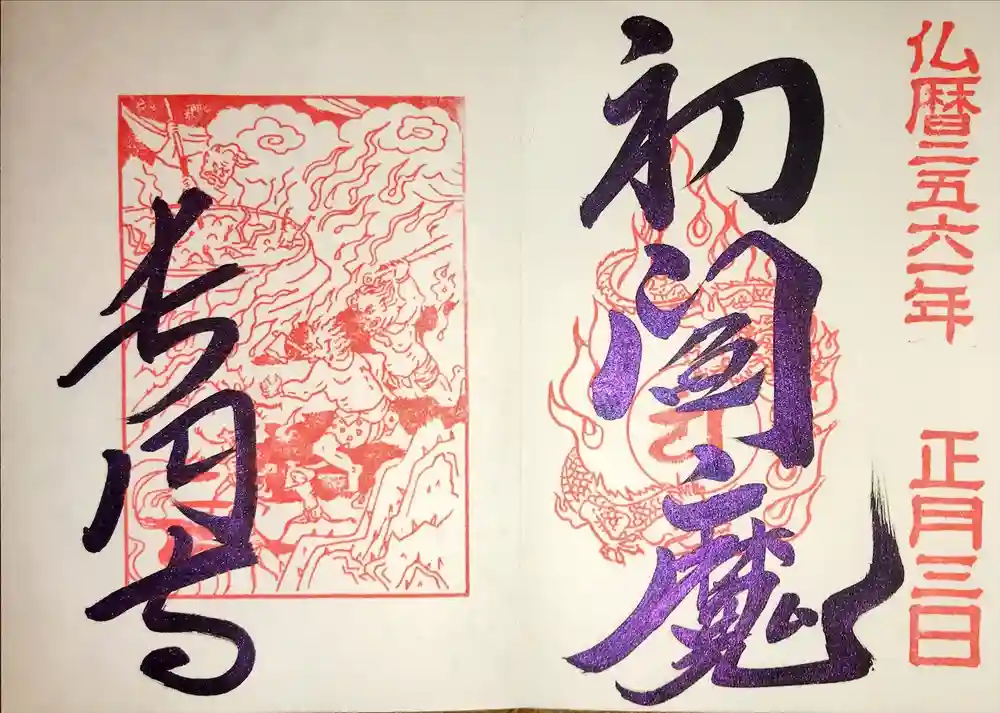 仏暦二五六一年 正月三日
初閻魔
長円寺